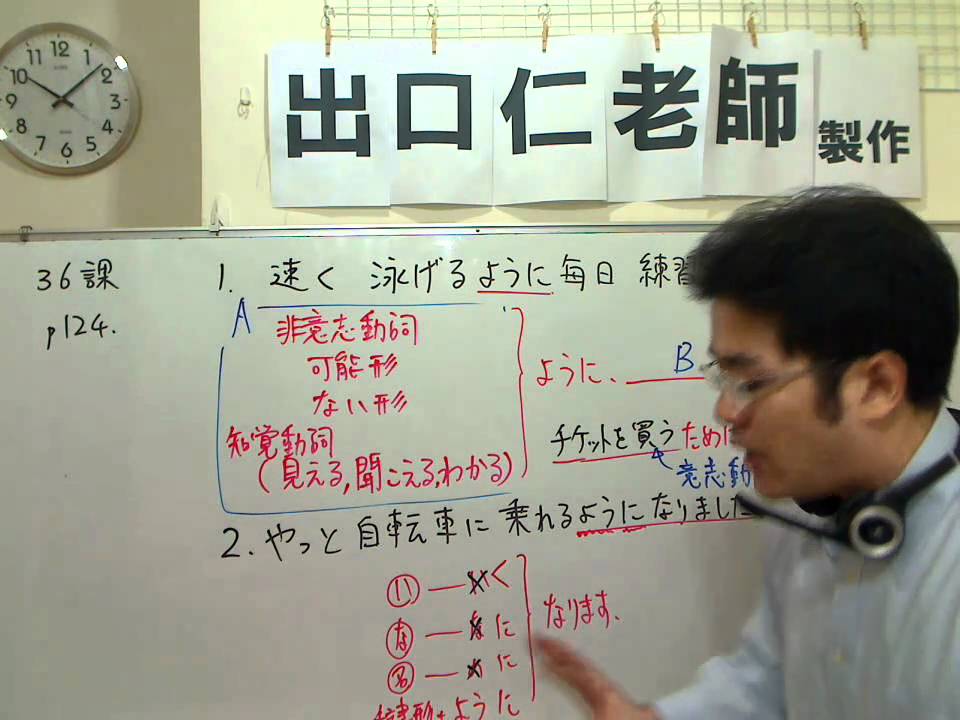 12 1 2 3 4 5 6 7 8 9 10 11
出口仁老師 製作
36課
p124.
1. 速く 泳げるように毎日 練習
A
非意志動詞
可能形
ない形
知覚動詞
(見える,聞こえる,わかる)
ように、 B
チケットを買うために
意志動
2. やっと 自転車に 乗れるようになりました
い — い く
な — な に
名 — に
なります.
ように